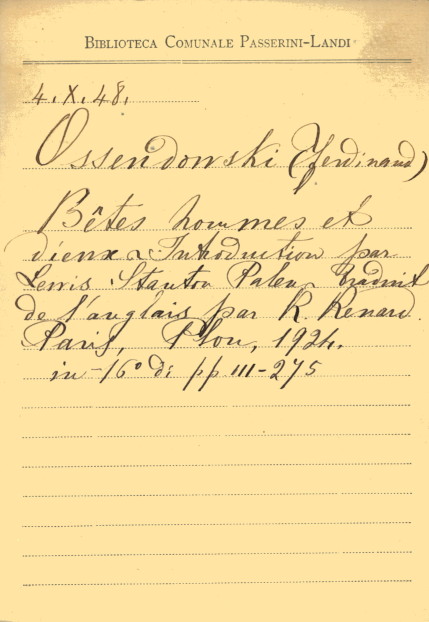 BIBLIOTECA COMUNALE PASSERINI-LANDI
4.X.48.
Ossendowski (Ferdinand)
Bêtes hommes et
dieux - Introduction par
Lewis Stanton Palen - Traduit
de l'anglais par R. Renard.
Paris, Plon, 1924.
in-16° di pp III-275